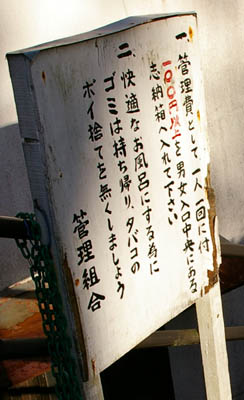 一、管理費として一人 一回に付
一〇〇円以上を男女入口中央にある
志納箱へ入れて下さい
二、快適なお風呂にする為に
ゴミは持ち帰り、タバコの
ポイ捨てを無くしましょう
管理組合